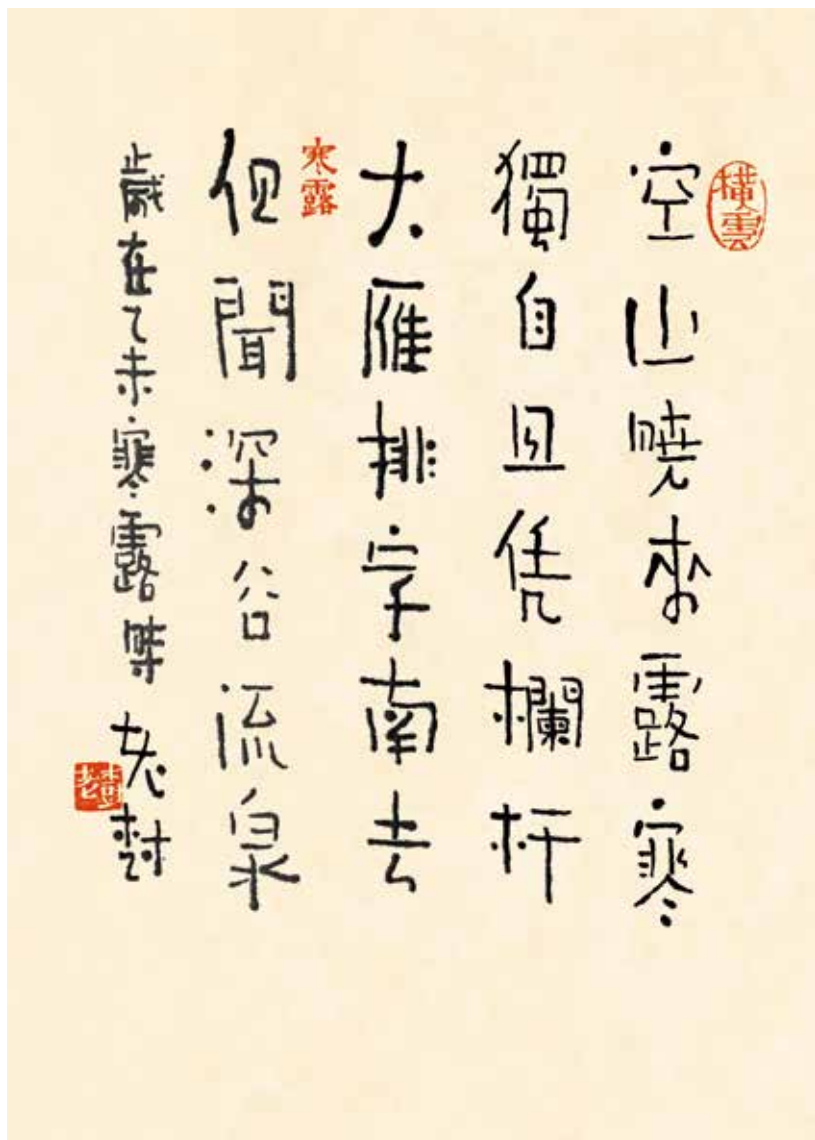 橫雲
空山曉來露寒
獨自且凭欄杆
大雁排字南去
寒露
但聞深谷流泉
歲在乙未寒露時 老樹
老樹